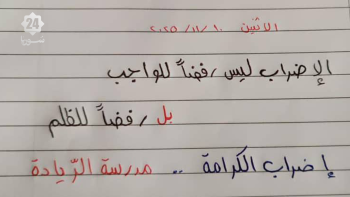 24
سوريا
الاثنين ١٠ / ١١ / ٢٠٢٥
الإضراب ليس رفضاً للواجب
بل رفضاً للظلم
إضراب الكرامة .. مدرسة الرّيادة